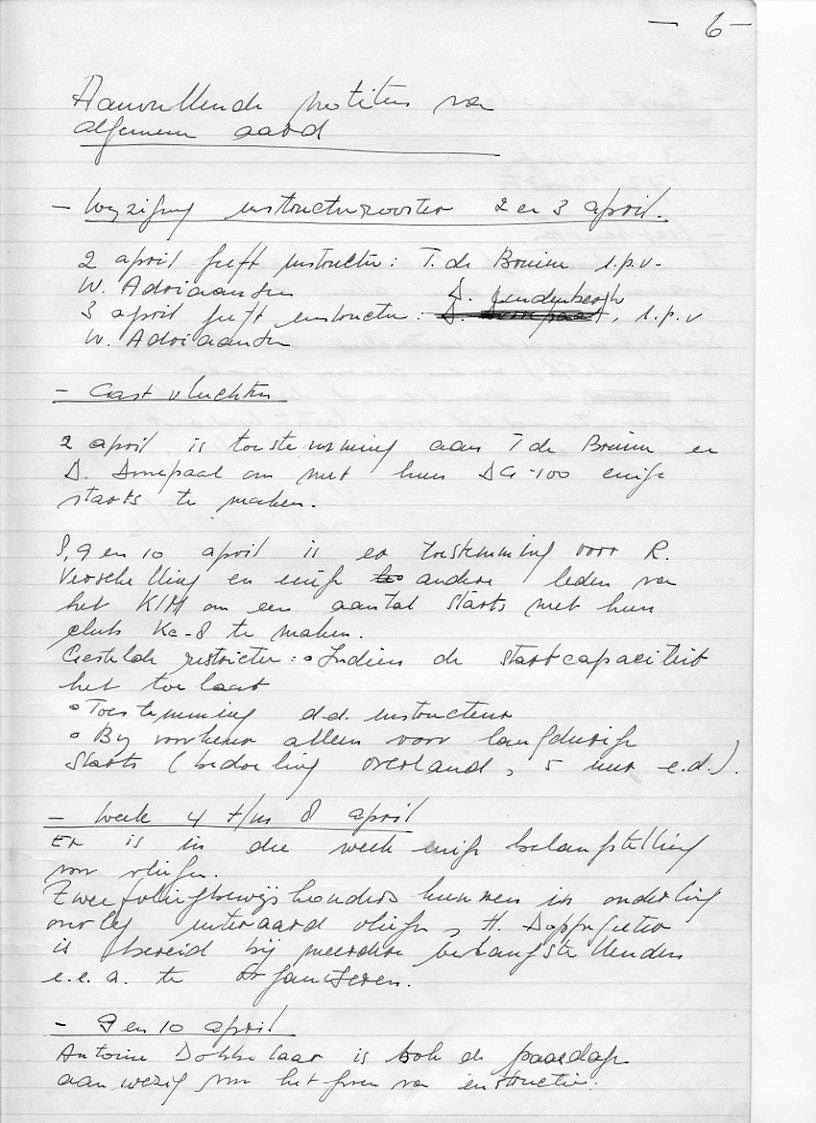 - 6 -
Aanvullende notities van
algemene aard
- Wijziging instructierooster 2 en 3 april.
2 april geeft instructie: T. de Bruine i.p.v.
W. Adriaansen
D. Lindenbergh
3 april geeft instructie: , i.p.v
W. Adriaansen
- Gastvluchten
2 april is toestemming aan T de Bruine en
D. om met hun DG-100 enige
starts te maken.
8, 9 en 10 april is er toestemming voor R.
Verschelling en enige andere leden van
het KIM om een aantal starts met hun
club Ka-8 te maken.
Gestelde restrictie: ° Indien de startcapaciteit
het toelaat
° Toestemming d.d. instructeur
° Bij voorkeur alleen voor langdurige
starts (bedoeling overland, 5 uur e.d.).
- Week 4 t/m 8 april
Er is in die week enige belangstelling
voor vliegen.
Zweefvliegbewijshouders kunnen in onderling
overleg uiteraard vliegen, H. Doppegieter
is bereid bij meerdere belangstellenden
e.e.a. te organiseren.
- 9 en 10 april
Antoine Dobbelaar is ook de paasdagen
aanwezig voor het geven van instructie.